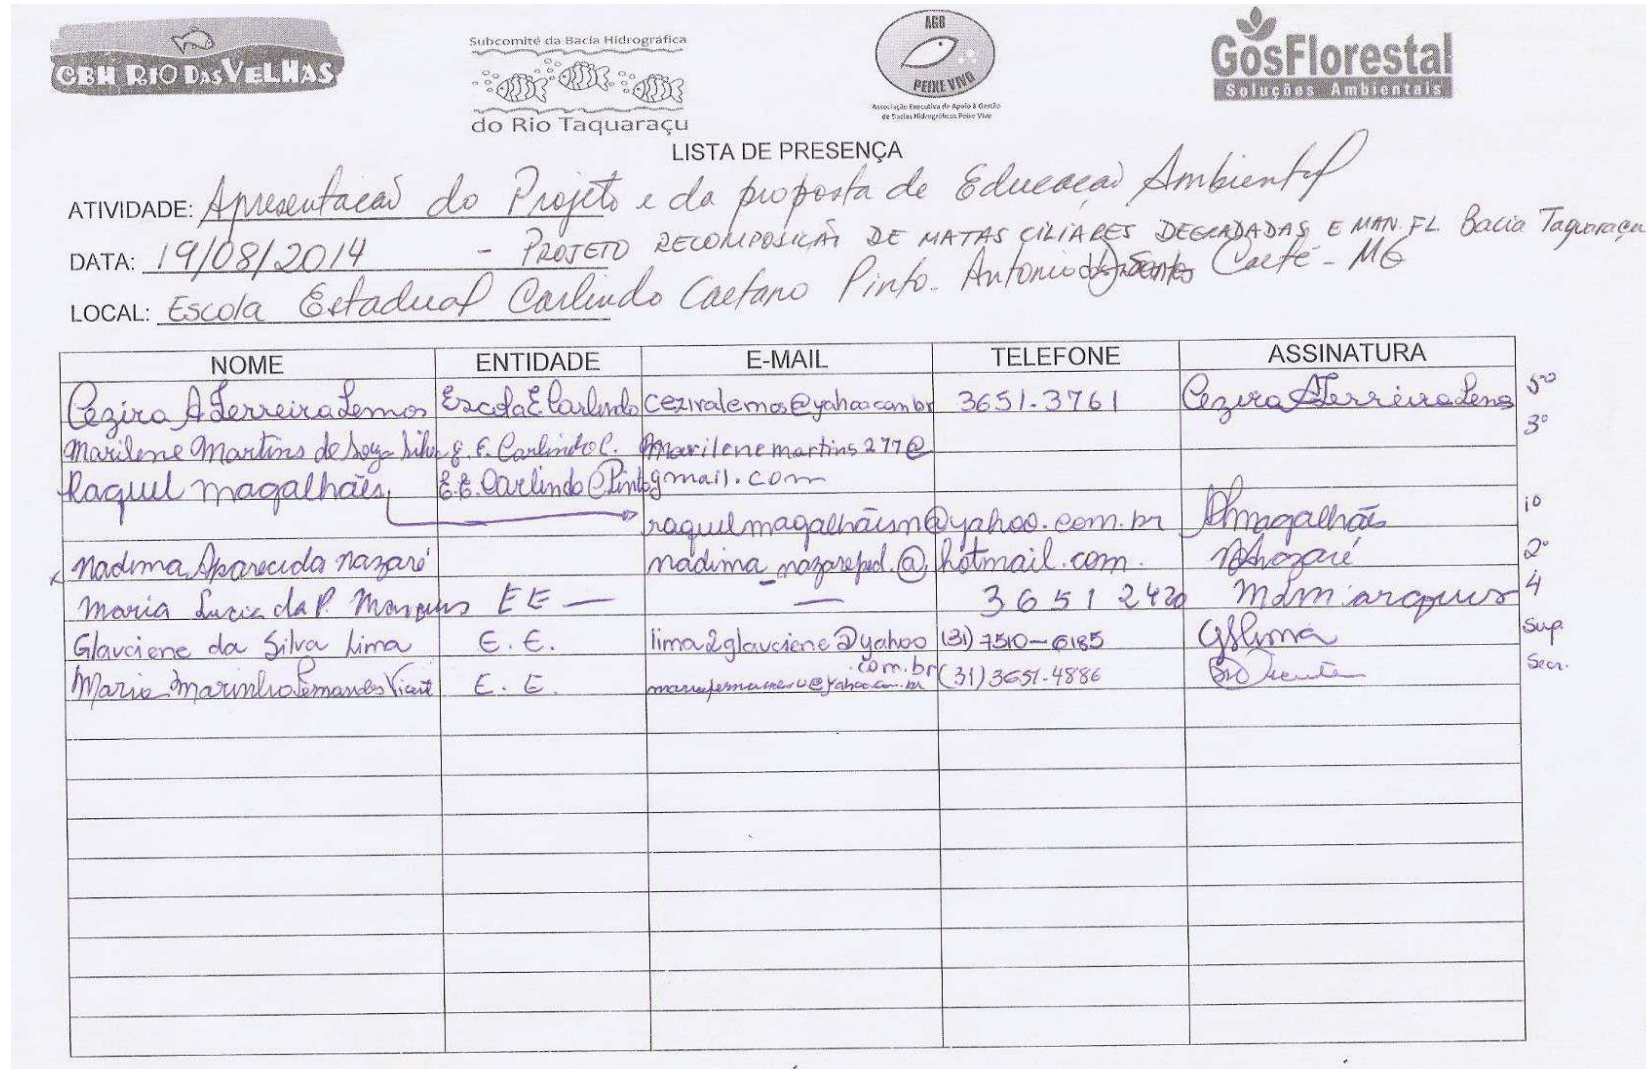 CBH RIO DAS VELHAS
Subcomitê da Bacia Hidrográfica
do Rio Taquaraçu
AGB
PEIXE VIVO
Associação Executiva de Apoio à Gestão
de Bacias Hidrográficas Peixe Vivo
GosFlorestal
Soluções Ambientais
LISTA DE PRESENÇA
ATIVIDADE: Apresentação do Projeto e da proposta de Educação Ambiental
DATA: 19/08/2014 - PROJETO RECOMPOSIÇÃO DE MATAS CILIARES DEGRADADAS E MAN. FL Bacia Taquaraçu
LOCAL: Escola Estadual Carlindo Caetano Pinto. Antonio dos Santos Caeté - MG
NOME ENTIDADE E-MAIL TELEFONE ASSINATURA
Cezira A Ferreira Lemos Escola E Carlindo ceziralemos@yahoo.com.br 3651-3761 Cezira A Ferreira Lemos 5º
Marilene Martins de Souza Silva E. E. Carlindo C. marilenemartins277@ 3º
Raquel Magalhães E.E. Carlindo C Pinto gmail.com
raquelmagalhãesm@yahoo.com.br Rmagalhães 1º
Nadima Aparecida Nazaré nadima_nazareped.@hotmail.com. NANazaré 2º
Maria Lucia da P. Marques EE — — 3651 2420 mdmarques 4
Glauciene da Silva Lima E. E. lima2glauciene@yahoo (31) 7510-6185 GSLima Sup
.com.br
Maria Marinha Fernandes Vicente E. E. (31) 3651-4886 Secr.